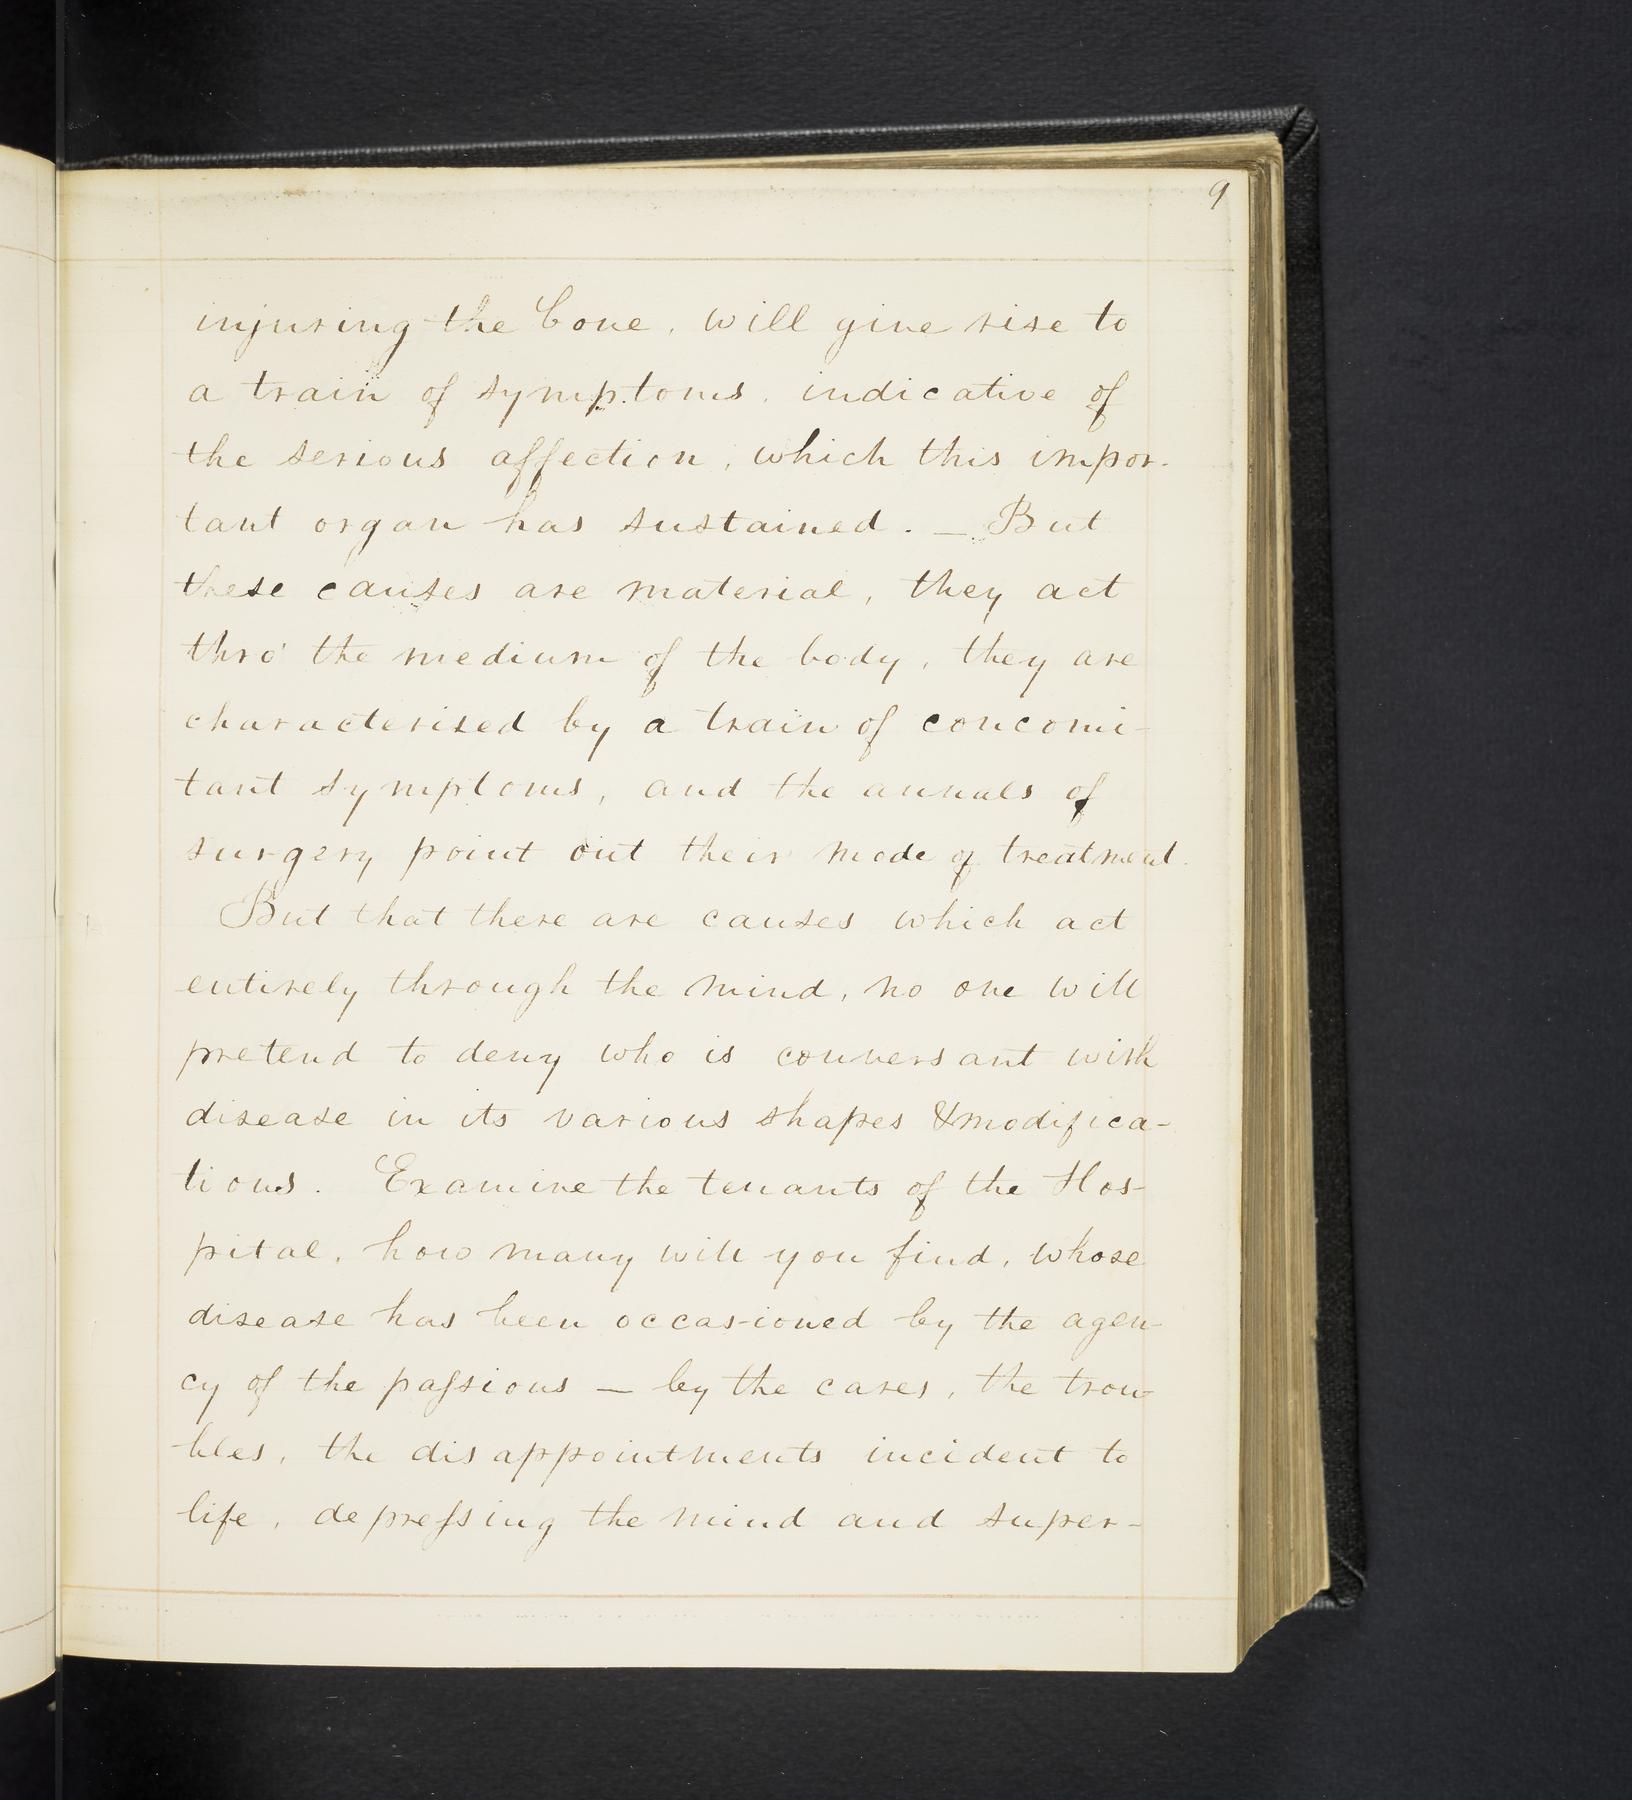 9
injuring the bone, will give rise to
a train of symptoms, indicative of
the serious affection, which this impor-
tant organ has sustained. — But
these causes are material, they act
thro' the medium of the body, they are
characterised by a train of concomi-
tant symptoms, and the annals of
surgery point out their mode of treatment.
But that there are causes which act
entirely through the mind, no one will
pretend to deny who is conversant with
disease in its various shapes & modifica-
tions. Examine the tenants of the Hos-
pital, how many will you find, whose
disease has been occasioned by the agen-
cy of the paſsions — by the cares, the trou-
bles, the disappointments incident to
life, depreſsing the mind and super-